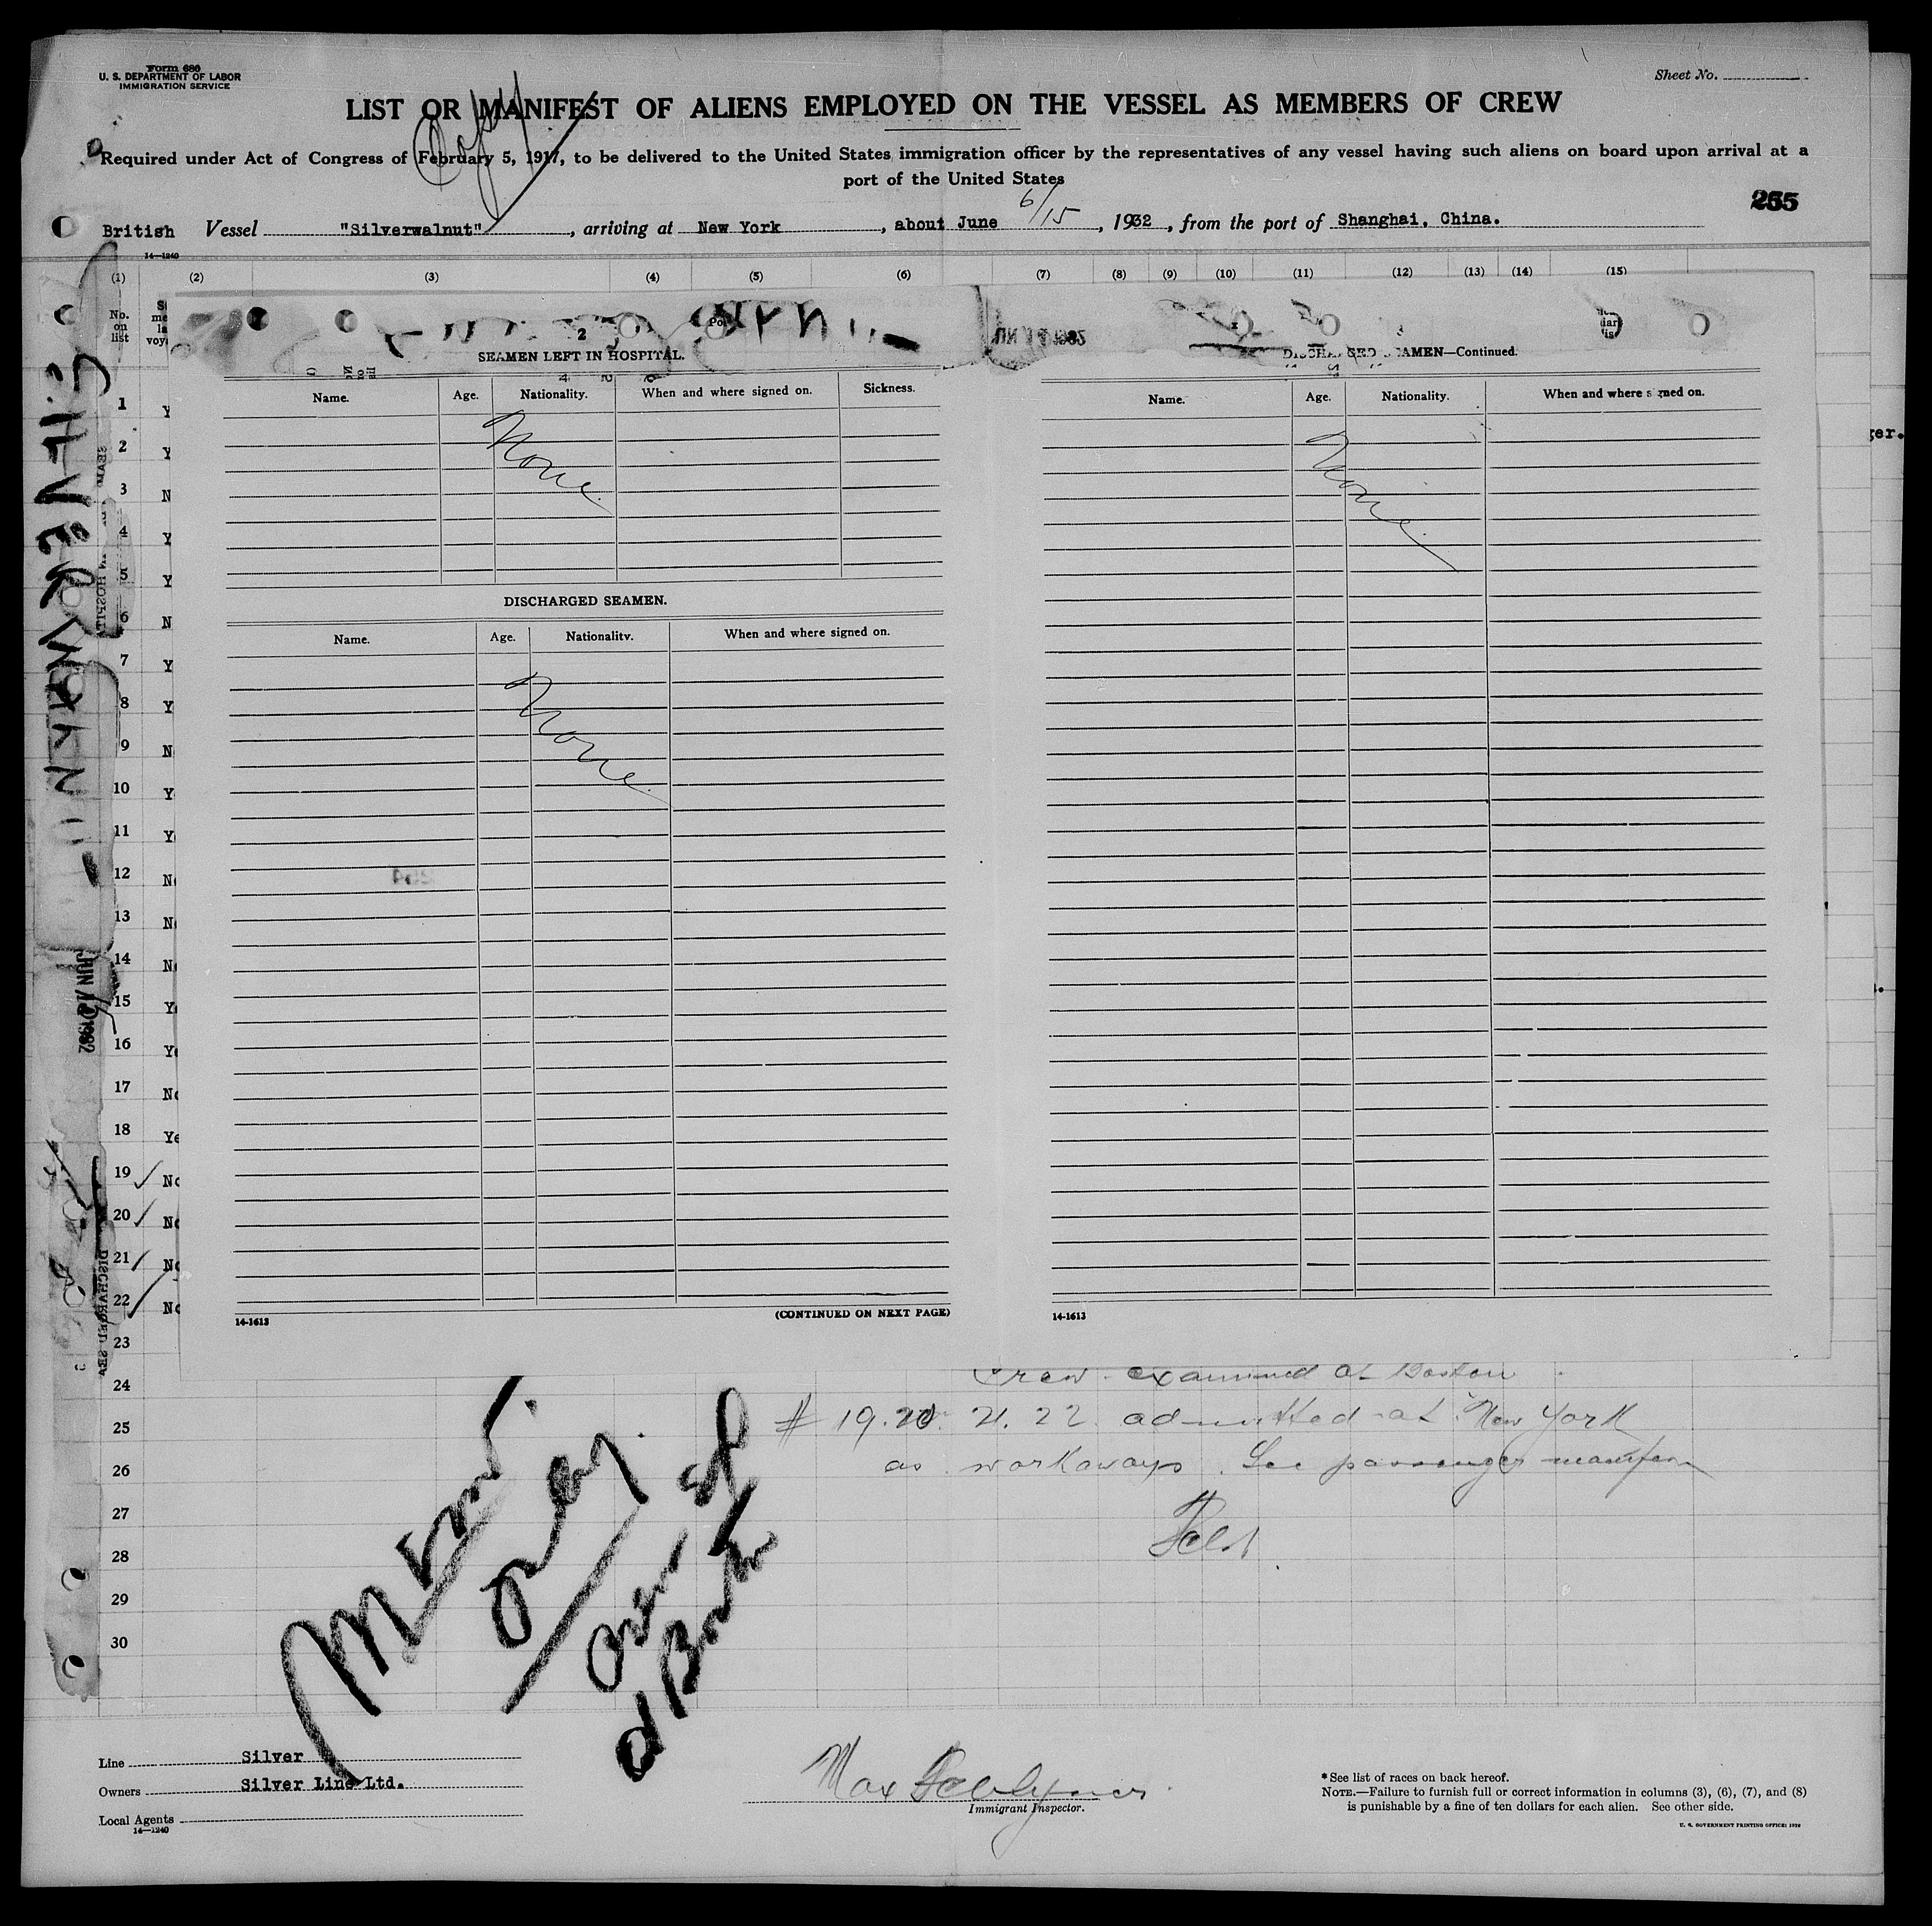 Form 680
U. S. DEPARTMENT OF LABOR
IMMIGRATION SERVICE
Sheet No.
LIST OR MANIFEST OF ALIENS EMPLOYED ON THE VESSEL AS MEMBERS OF CREW
Copy
Required under Act of Congress of February 5, 1917, to be delivered to the United States immigration officer by the representatives of any vessel having such aliens on board upon arrival at a
port of the United States
255
British Vessel "Silverwalnut", arriving at New York, about June 6/15, 1932, from the port of Shanghai, China.
14—1240
(1) (2) (3) (4) (5) (6) (7) (8) (9) (10) (11) (12) (13) (14) (15)
No. on list
2
SEAMEN LEFT IN HOSPITAL.
Name. Age. Nationality. When and where signed on. Sickness.
None
DISCHARGED SEAMEN.
Name. Age. Nationality. When and where signed on.
None
(CONTINUED ON NEXT PAGE)
14-1613
DISCHARGED SEAMEN—Continued.
Name. Age. Nationality. When and where signed on.
None
14-1613
ger.
1 Y
2 Y
3 N
4 Y
5 Y
6 N
7 Y
8 Y
9 N
10 Y
11 Y
12 N
13 N
14 N
15 Y
16 Y
17 No
18 Ye
19 No
20 No
21 No
22 No
23
24
25
26
27
28
29
30
JUN 1932
Crew examined at Boston
# 19. 20. 21. 22 admitted at New York
as workaways. See passenger manifest
Line Silver
Owners Silver Line Ltd.
Local Agents
14—1240
Max
Immigrant Inspector.
* See list of races on back hereof.
NOTE.—Failure to furnish full or correct information in columns (3), (6), (7), and (8)
is punishable by a fine of ten dollars for each alien. See other side.
U. S. GOVERNMENT PRINTING OFFICE: 1929